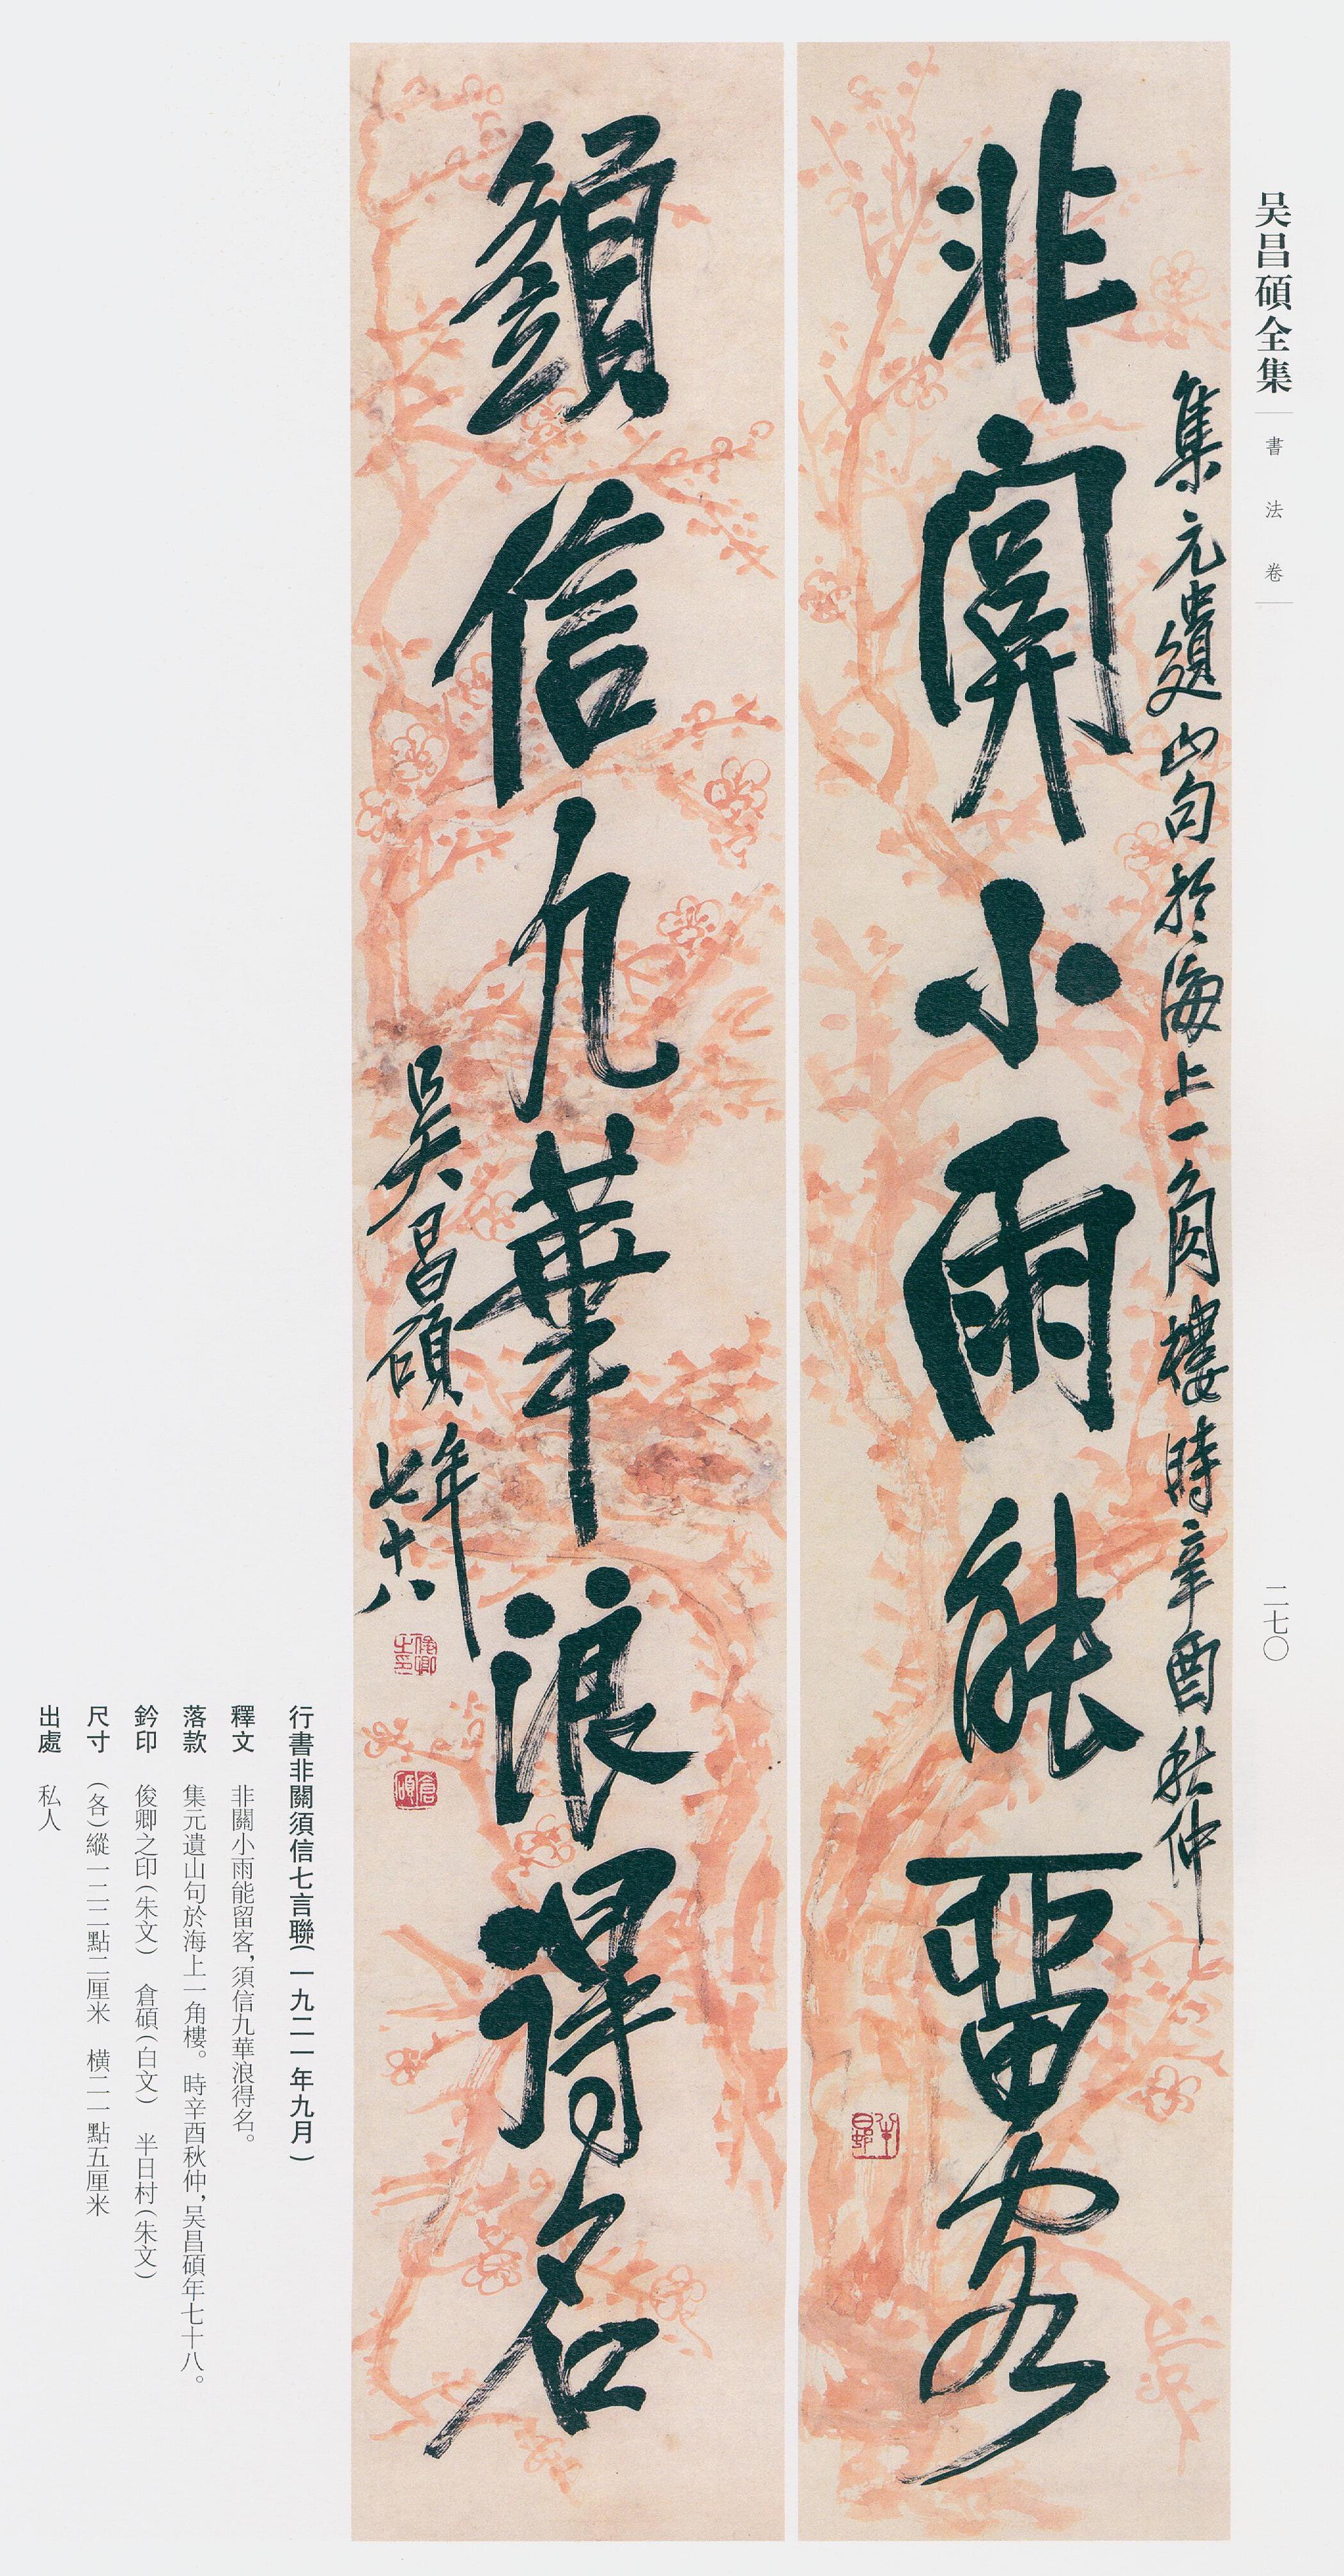 吴昌碩全集
書法卷
二七〇
集元遺山句於海上一角樓時辛酉秋仲
非關小雨能留客
須信九華浪得名
吳昌碩年
七十八
俊卿之印
倉碩
半日邨
行書非關須信七言聯(一九二一年九月)
釋文　非關小雨能留客,須信九華浪得名。
落款　集元遺山句於海上一角樓。時辛酉秋仲,吴昌碩年七十八。
鈐印　俊卿之印(朱文)　倉碩(白文)　半日村(朱文)
尺寸　(各)縱一二二點二厘米　橫二一點五厘米
出處　私人